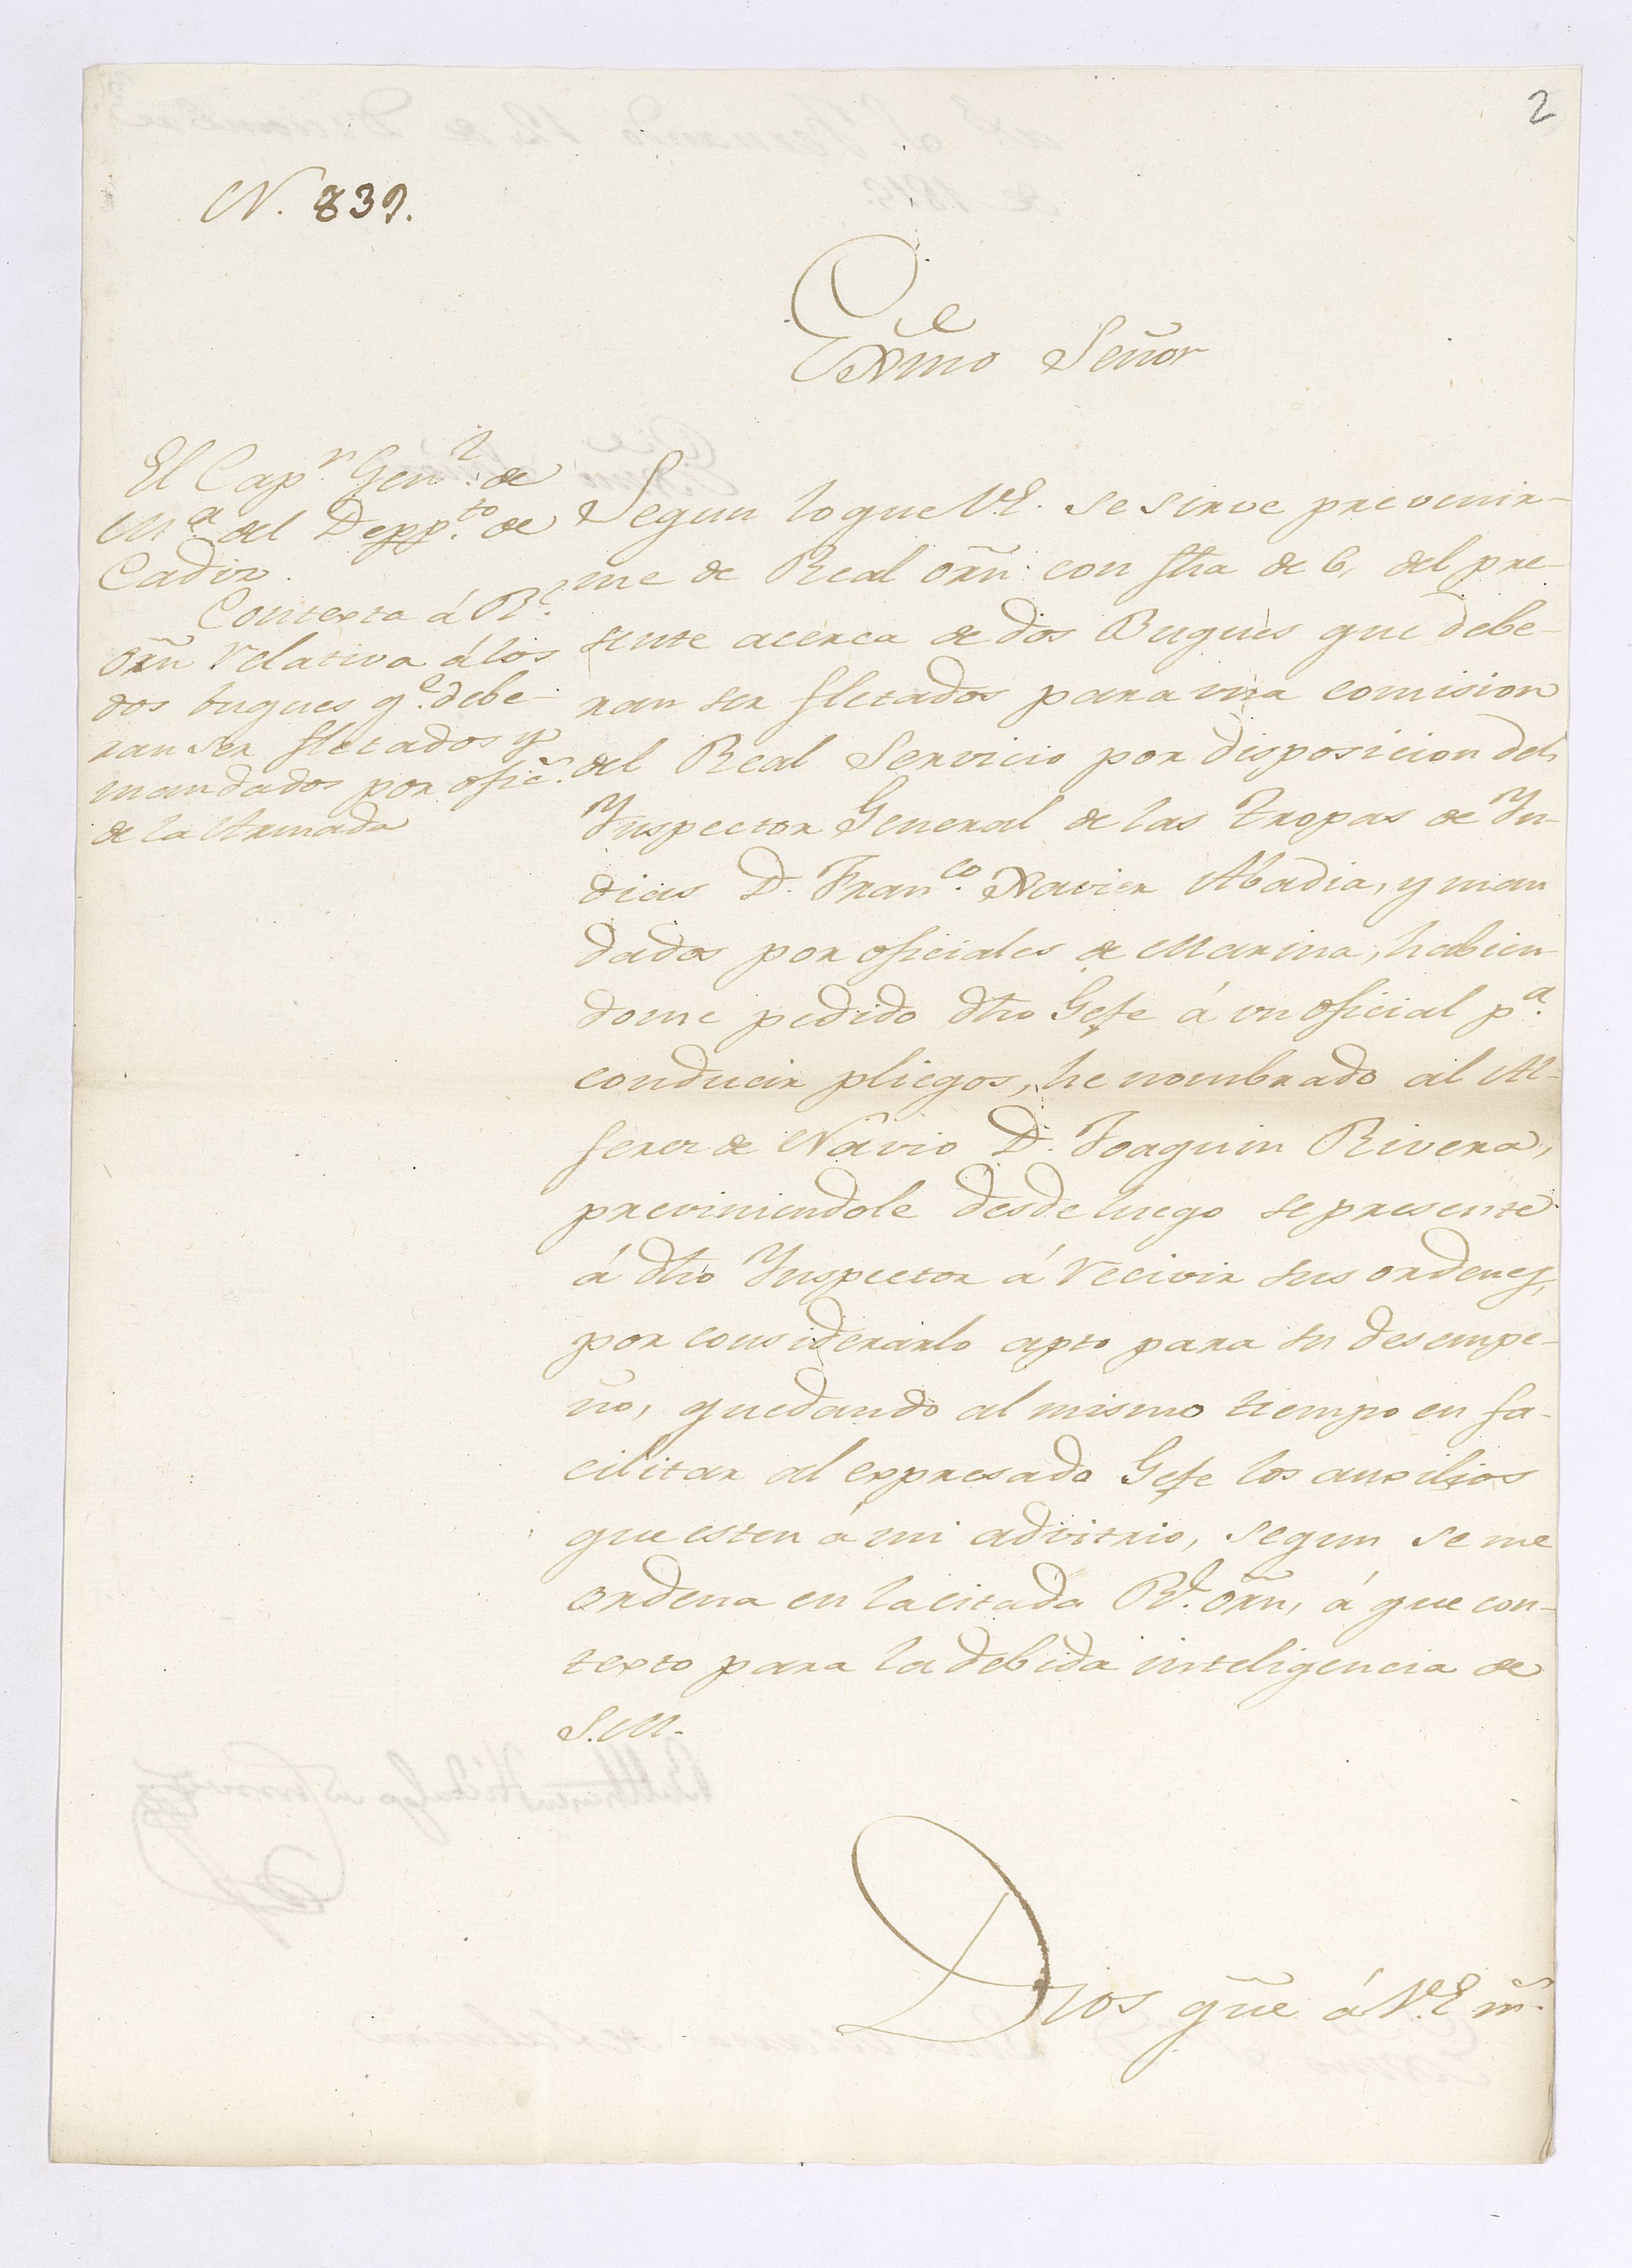 2
N. 839.
Exmo Señor
El Cap.n Gen.l de
M.a del Depp.to de
Cadiz.
Contexta á R.l
Orn̄ relativa á los
dos buques q.e debe-
ran ser fletados y
mandados por ofic̄.
de la Armada
Segun lo que V.E. se sirve prevenir-
me de Real orn̄ con fha de 6, del pre-
sente acerca de dos Buques que debe-
ran ser fletados para una comision
del Real Servicio por disposicion del
Ynspector General de las Tropas de Yn-
dias D. Fran.co Xavier Abadia, y man
dados por oficiales de Marina, habien-
dome pedido dho Gefe á un oficial p.a
conducir pliegos, he nombrado al Al-
ferez de Navio D. Joaquin Rivera,
previniendole desde luego se presente
á dho Ynspector á recivir sus ordenes,
por considerarlo apto para su desempe-
ño, quedando al mismo tiempo en fa-
cilitar al expresado Gefe los auxilios
que esten á mi advitrio, segun se me
ordena en la citada R.l orn̄, á que con-
texto para la debida inteligencia de
S.M.
Dios gūe á V.E. m̄.